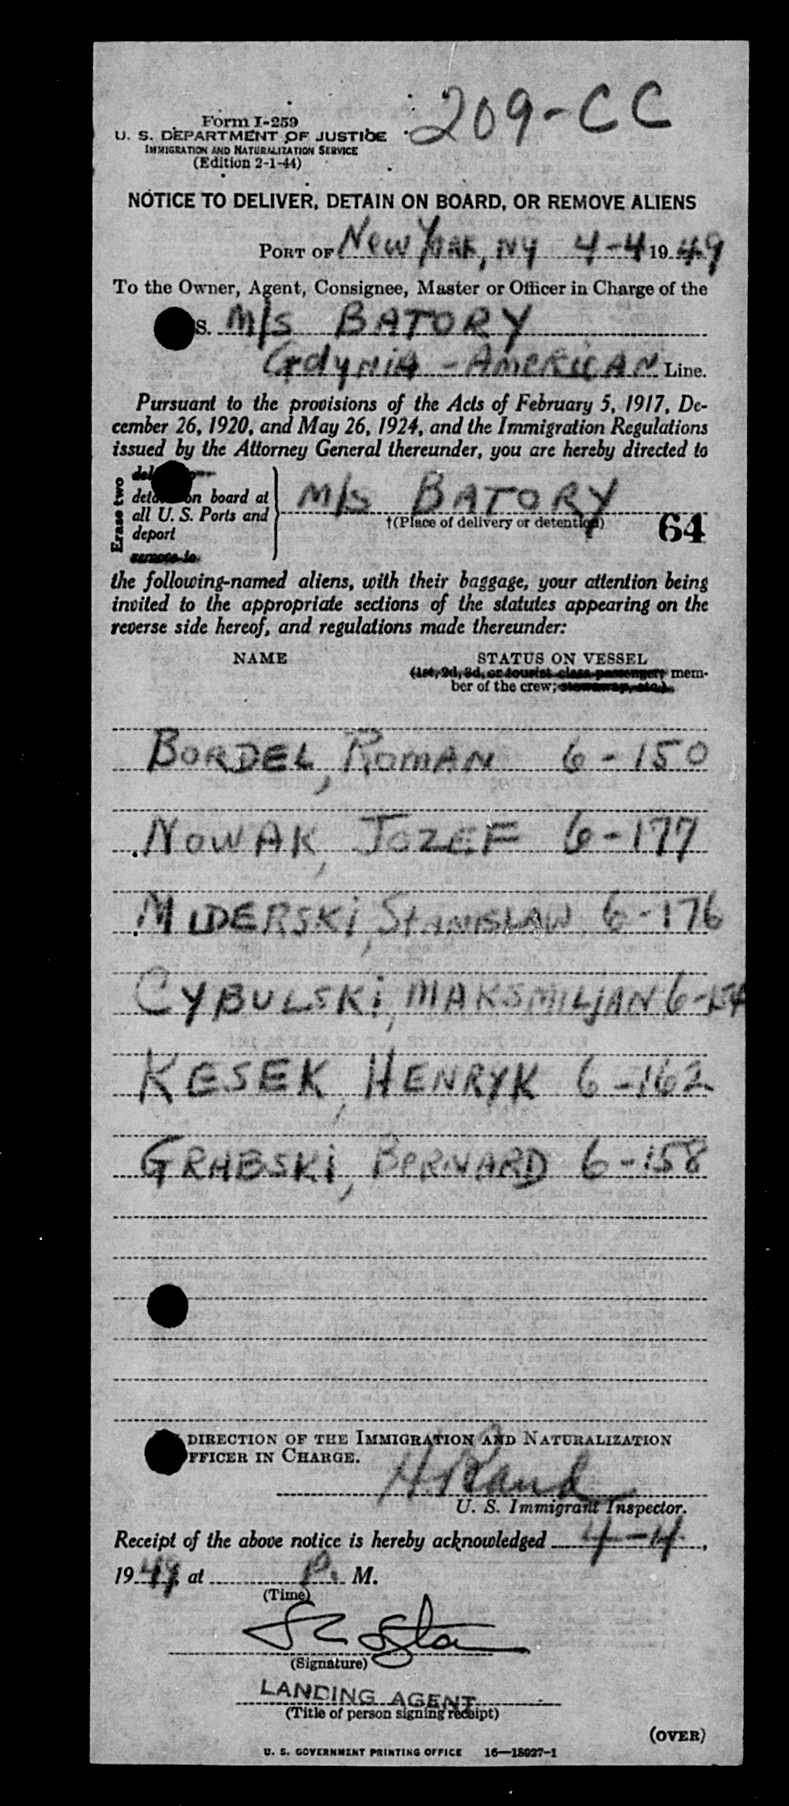 209-CC
Form I-259
U. S. DEPARTMENT OF JUSTICE
IMMIGRATION AND NATURALIZATION SERVICE
(Edition 2-1-44)
NOTICE TO DELIVER, DETAIN ON BOARD, OR REMOVE ALIENS
PORT OF New York, NY 4-4 1949
To the Owner, Agent, Consignee, Master or Officer in Charge of the
S. M/S BATORY
Gdynia - American Line.
Pursuant to the provisions of the Acts of February 5, 1917, De-
cember 26, 1920, and May 26, 1924, and the Immigration Regulations
issued by the Attorney General thereunder, you are hereby directed to
Erase two
on board at
all U. S. Ports and
deport
remove to
M/S BATORY
†(Place of delivery or detention)
64
the following-named aliens, with their baggage, your attention being
invited to the appropriate sections of the statutes appearing on the
reverse side hereof, and regulations made thereunder:
NAME STATUS ON VESSEL
(1st, 2d, 3d, or tourist class passenger, mem-
ber of the crew; stowaway, etc.)
BORDEL, ROMAN 6-150
NOWAK, JOZEF 6-177
MIDERSKI, STANISLAW 6-176
CYBULSKI, MAKSMILJAN 6-154
KESEK, HENRYK 6-162
GRABSKI, BERNARD 6-158
DIRECTION OF THE IMMIGRATION AND NATURALIZATION
OFFICER IN CHARGE.
U. S. Immigrant Inspector.
Receipt of the above notice is hereby acknowledged 4-4,
1949 at P. M.
(Time)
(Signature)
LANDING AGENT
(Title of person signing receipt)
(OVER)
U. S. GOVERNMENT PRINTING OFFICE 16—18027-1